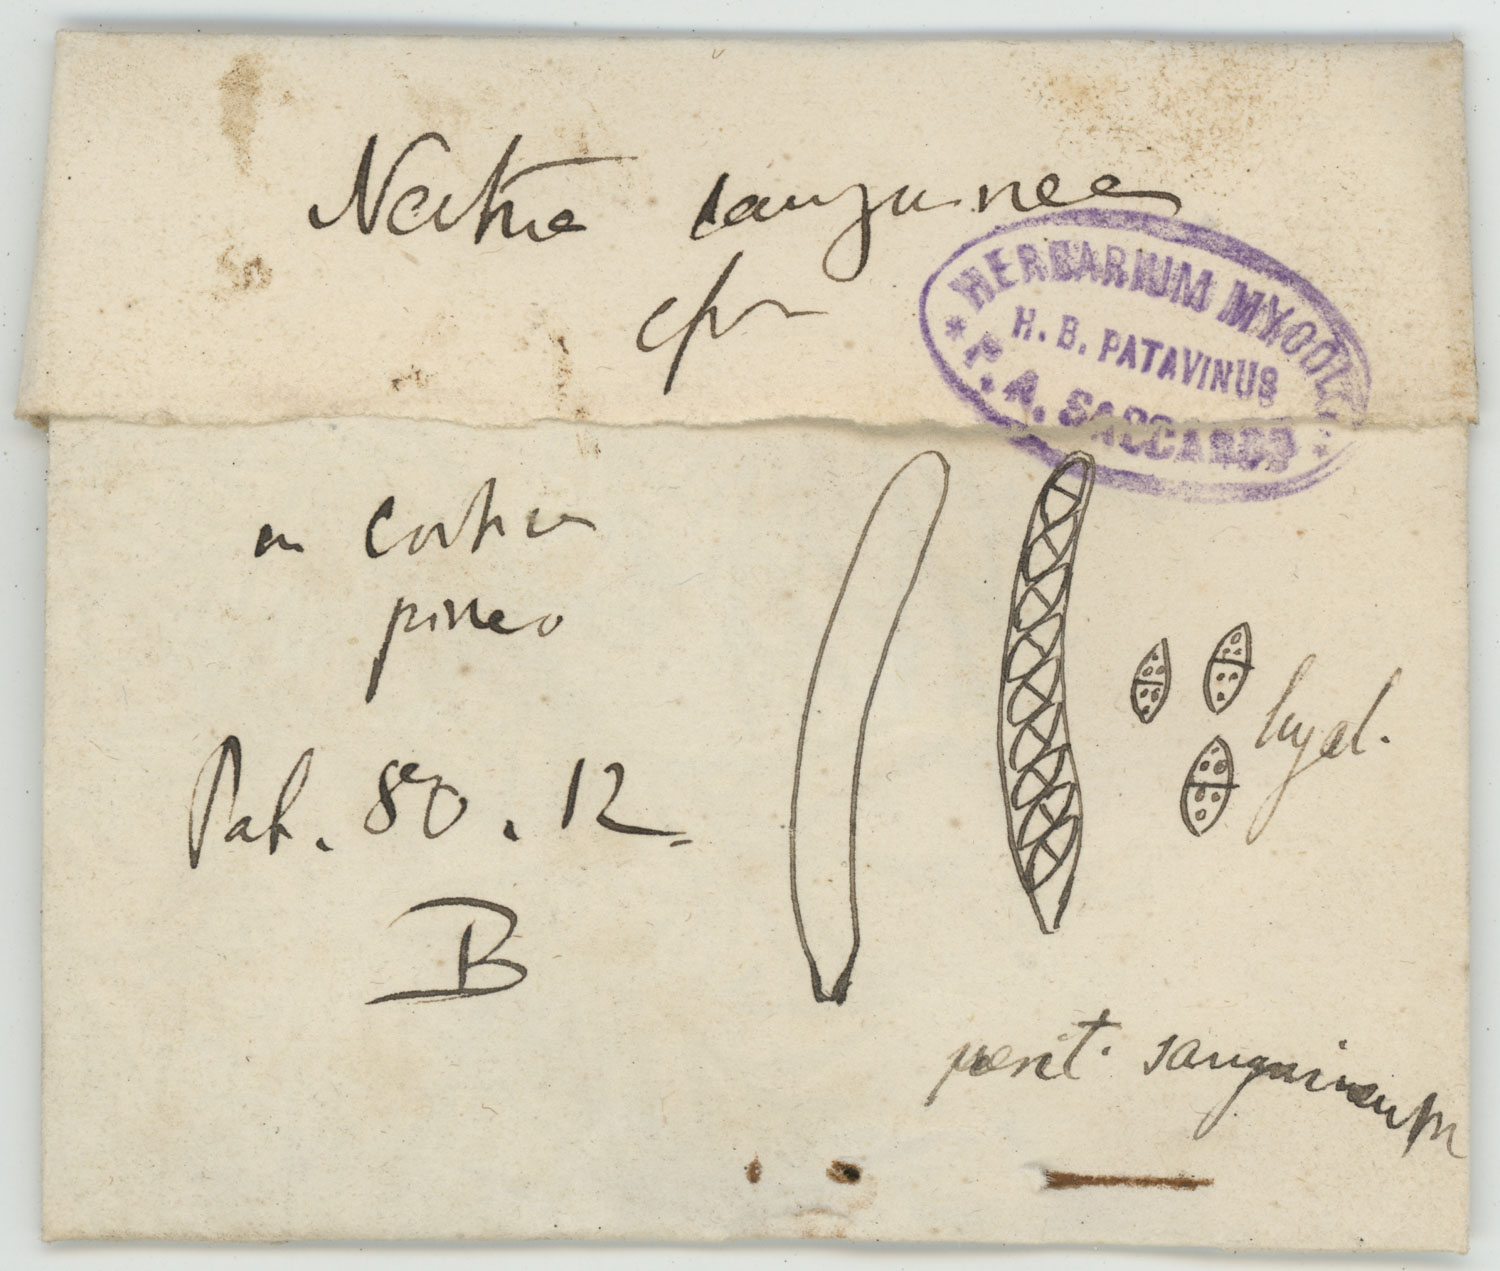 Nectria sanguinea
HERBARIUM MYCOLOG.
H. B. PATAVINUS
* P. A. SACCARDO *
in cortice
pineo
Pat. 80. 12
B
hyal.
perit. sanguineum